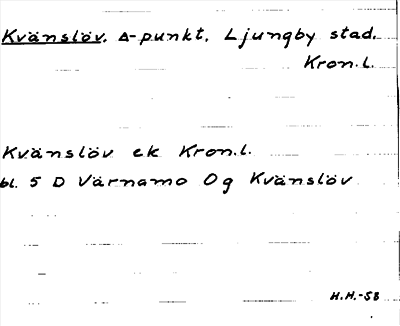 Kvänslöv. Δ-punkt. Ljungby stad.
Kron.l.
Kvänslöv ek Kron.l.
bl. 5 D Värnamo Og Kvänslöv
H.H.-58